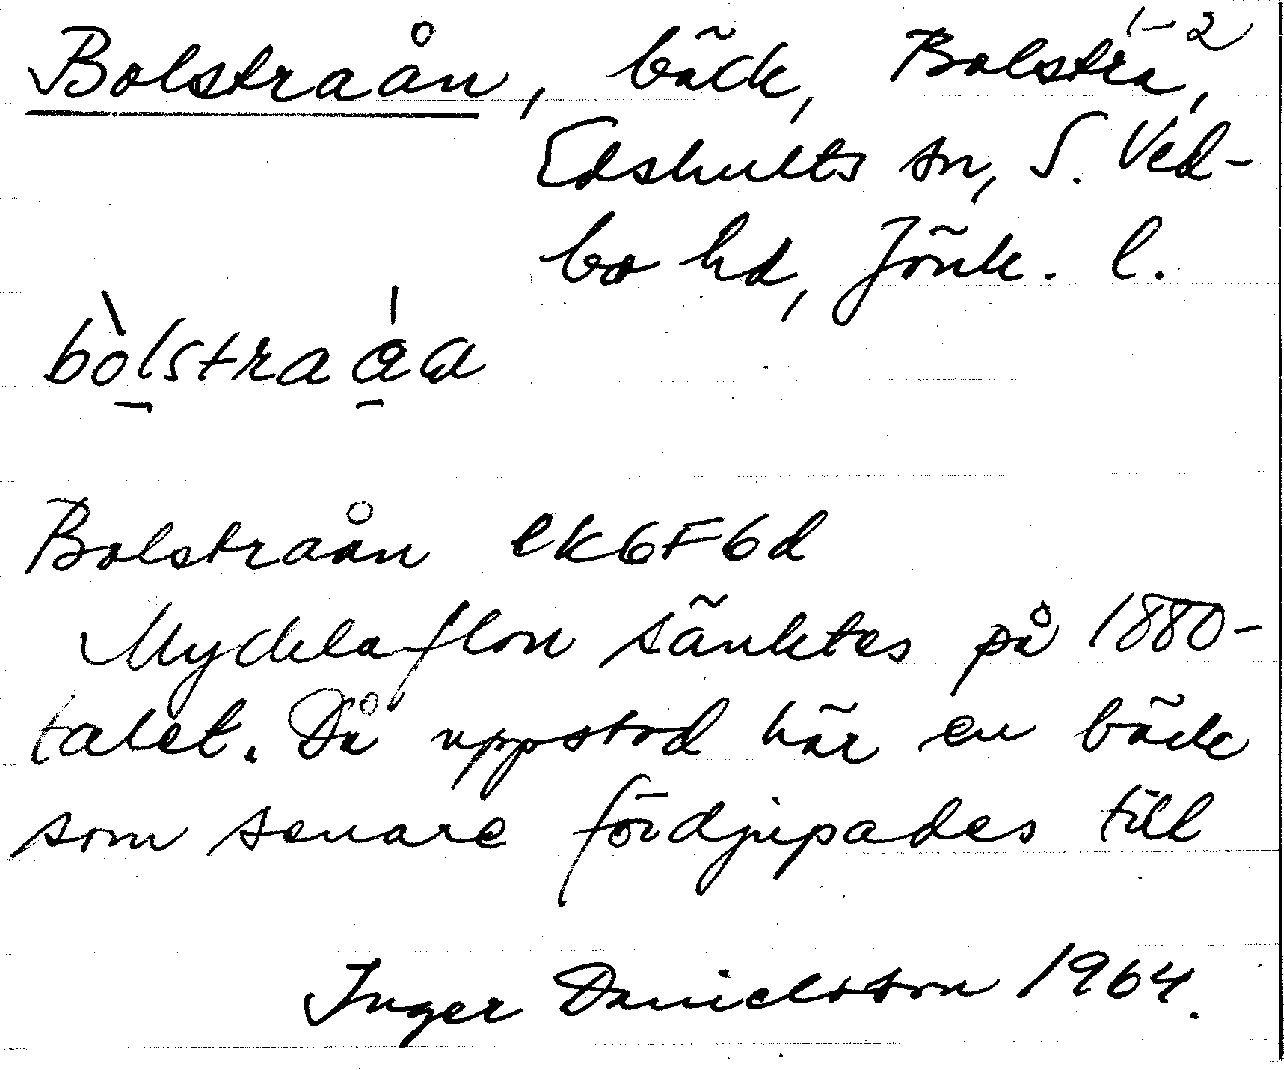 Bolstraån, bäck, Bolstra 1-2,
Edshults sn, S. Ved-
bo hd, Jönk. l.
bòlstraáa
Bolstraån ek6F6d
Myckla flon sänktes på 1880-
talet. Då uppstod här en bäck
som senare fördjupades till
Inger Danielsson 1964.